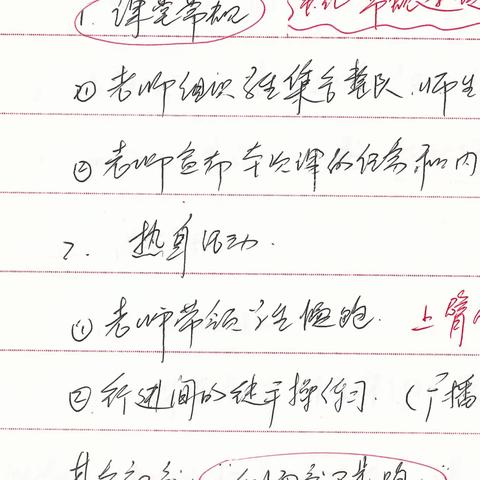 1. 课堂常规
① 老师组织学生集合整队.师生
② 老师宣布本次课的任务和内
2. 热身活动.
① 老师带领学生慢跑. 上臂
② 行进间的徒手操练习.(广播